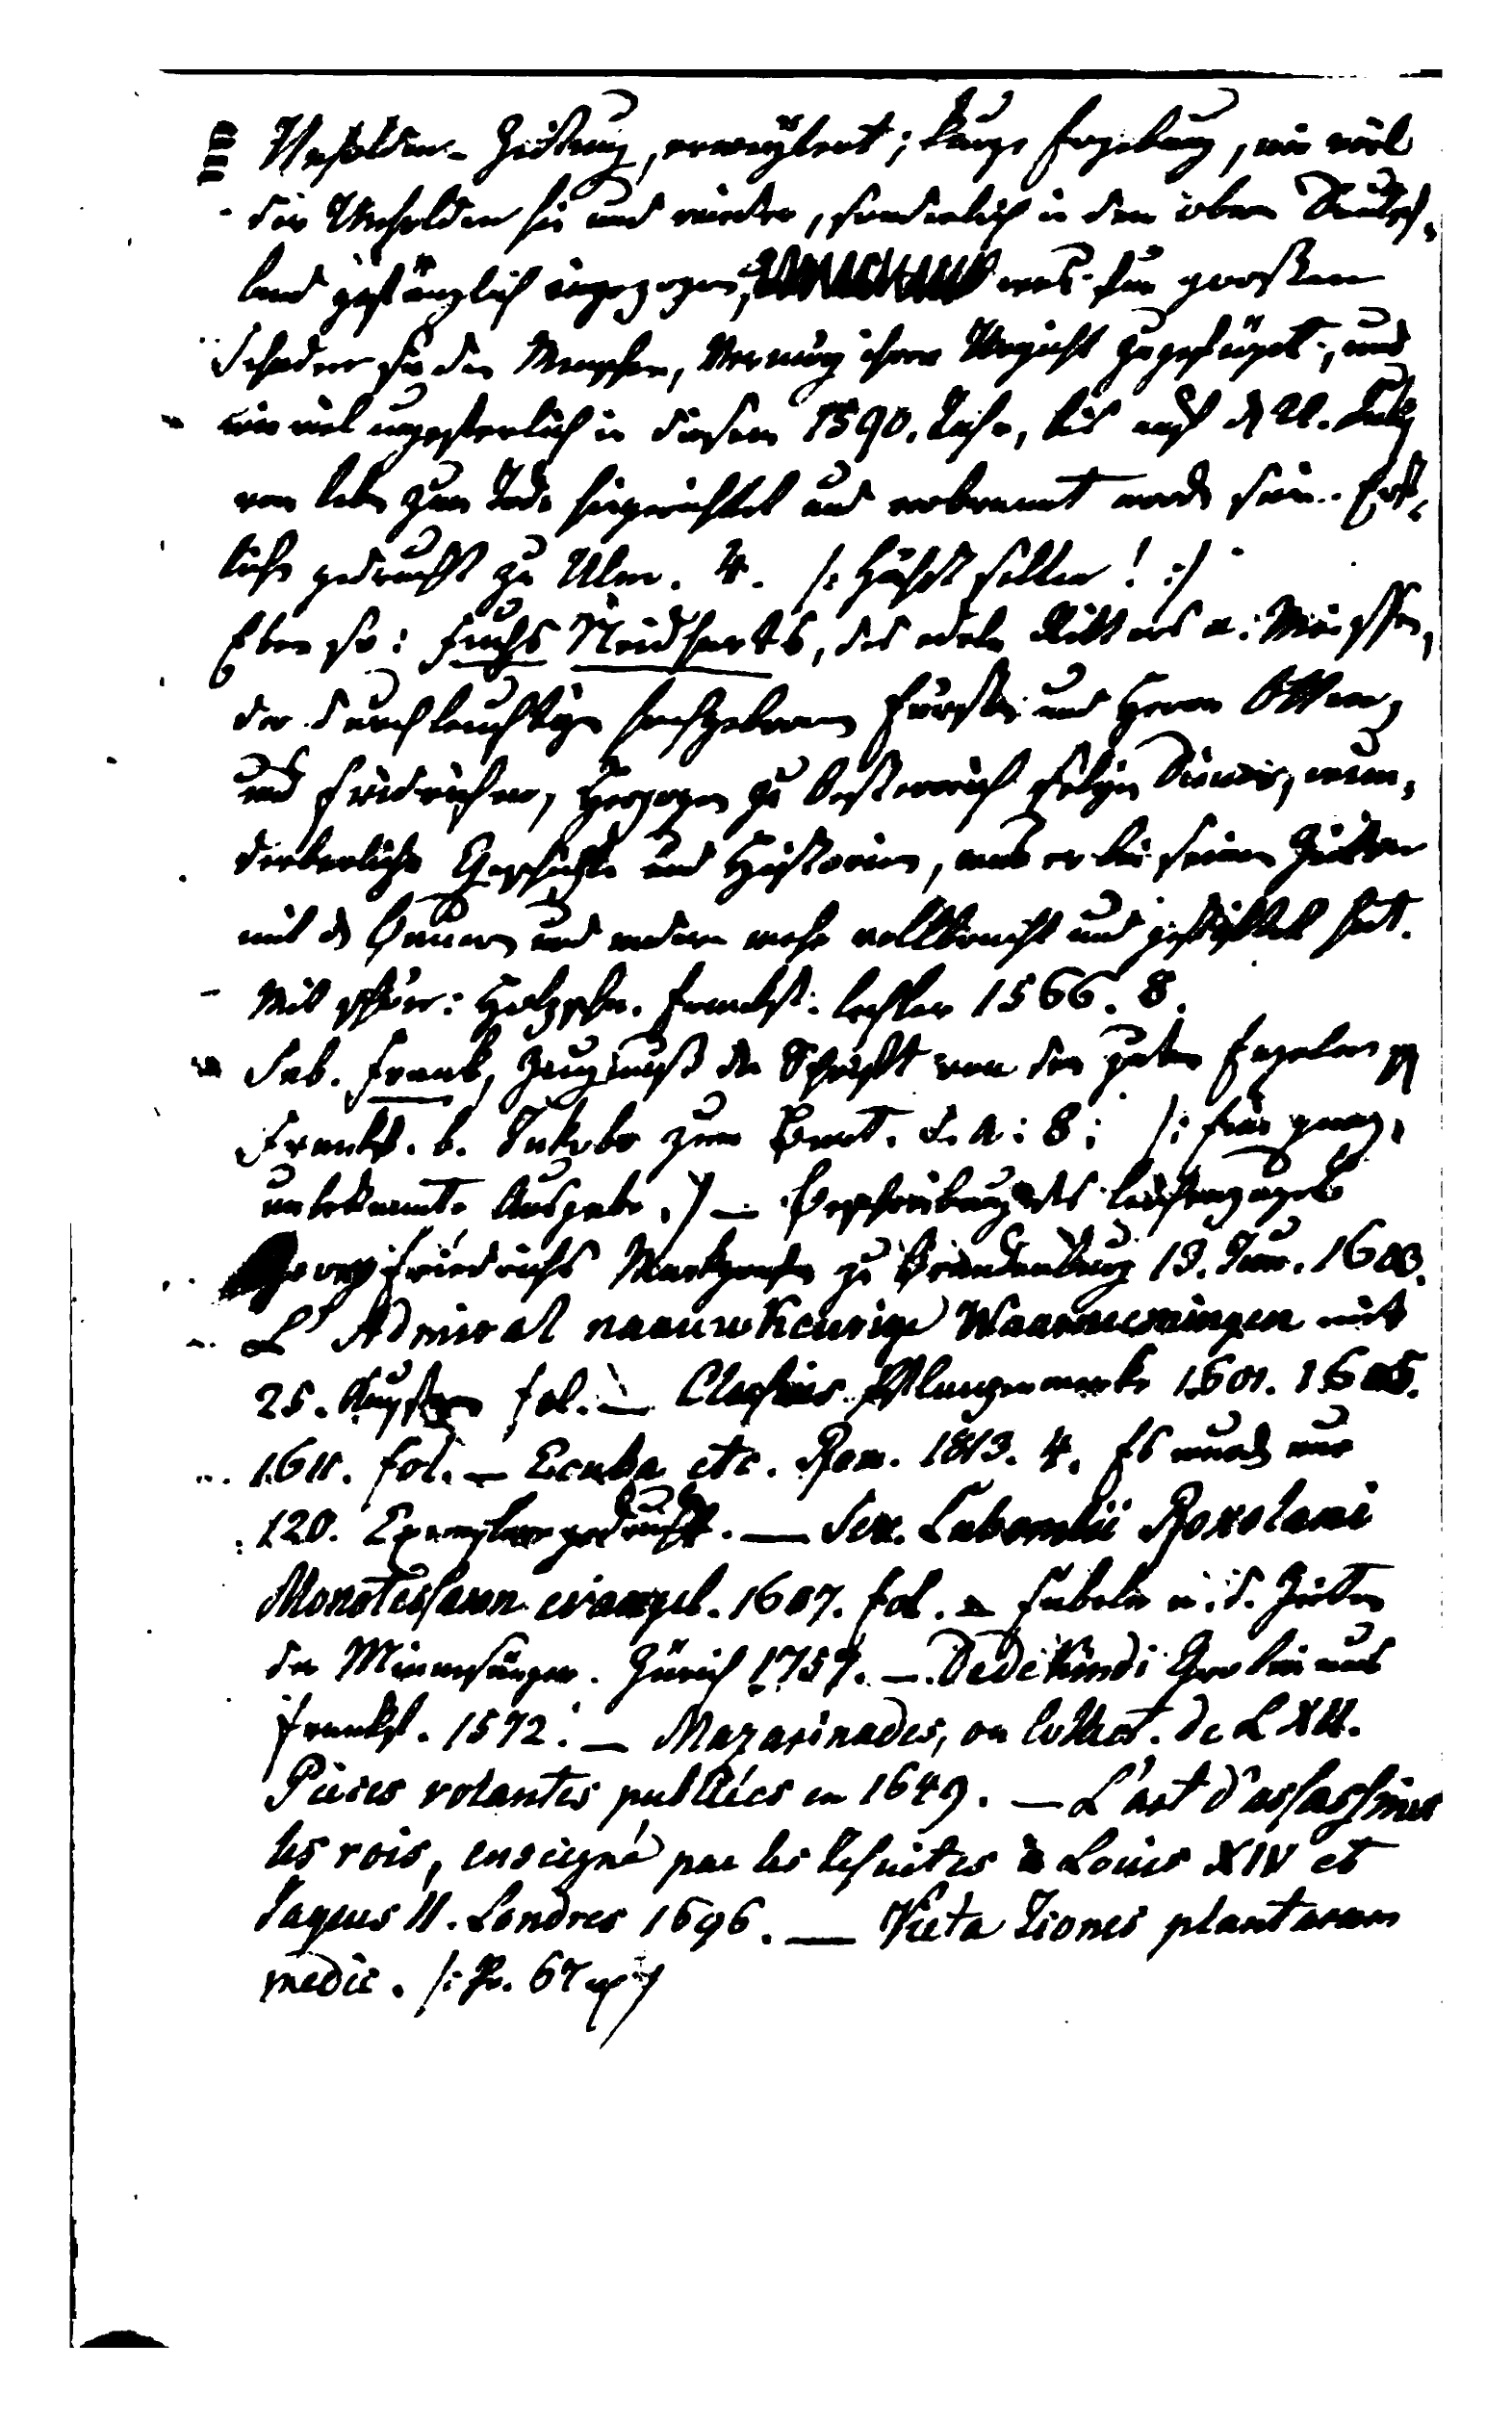 Unholden-Zeitung, erweytert; kurze Erzelung, wie viel
der Unholden hin und wieder, sonderlich in dem obern Deutsch-
land gefänglich eingezogen, was für großen
Schaden sie den Menschen, vermög ihrer Urgicht zugefüget, und
wie viel ungefherlich in diesem 1590. Jahr, bis auf d 21. July
von Leben zum Tode hingerichtet und verbrannt word sein. Erst-
lich gedruckt zu Ulm. 4. /: Höchst selten! :/
Eben so: Fuchs Neidharts, des edeln Ritters a. Meissen,
der durchleuchtigen hochgebornen Fürsten und Herrn Otten,
und Fridrichen, Herzogen zu Oesterreich seligen Diener, wun-
derbarliche Geschichte und Historien, was er bei seinen Zeiten
mit d Bauern und andern mehr vollbracht und gestiftet hat.
Mit schön: Holzschn. Frankf: Lechler 1566. 8.
Seb. Frank, Zeugnuß der Schrift von den guten Engelen
Frankf. b. Jakobo zum Bart. s. a: 8: /: Eine ganz
unbekannte Ausgabe. :/ — Beschreibung des Leichenzuges
Georg Friedrichs Markgrafen zu Brandenburg 13. Jun. 1603.
L'Admiral naauwkeurige Waarneemingen mit
25. Kupfern fol. — Clusius Pflanzenwerke 1601. 1605.
1611. fol. — Ecuba etc. Rom. 1813. 4. Es wurd nur
120. Exemplare gedruckt. — Sew. Lubomlii Roxolani
Monotessaron evangel. 1607. fol. — Fabeln a. d. Zeiten
der Minnesänger. Zürich 1757. — Dedekindi Grobianus
Frankf. 1572. — Mazarinades, ou Collect. de LXII.
Pièces volantes publiées en 1649. — L'art d'assassiner
les rois, enseigné par les Jesuites à Louis XIV et
Jaques II. Londres 1696. — Vieta Icones plantarum
medic.